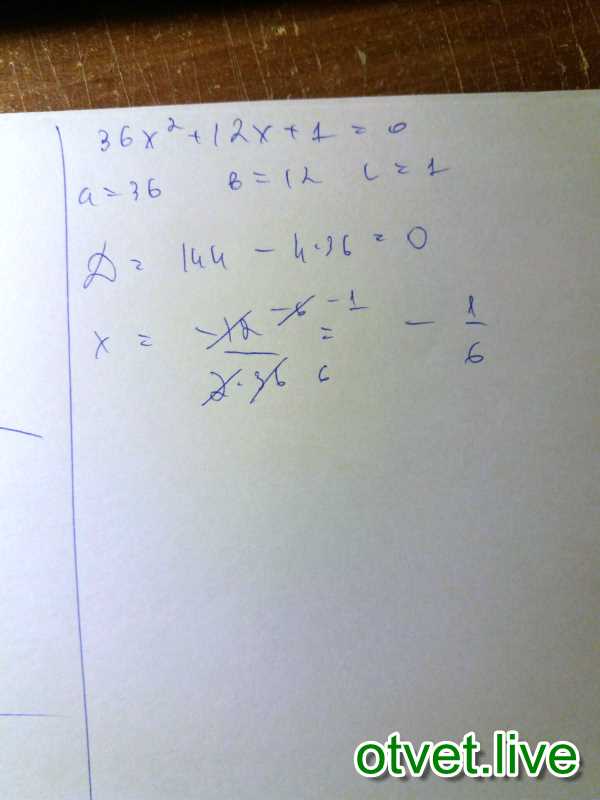 36x² + 12x + 1 = 0
a = 36 в = 12 c = 1
D = 144 - 4·36 = 0
x = -12 -6 -1 / 2·36 6 = - 1/6
otvet.live